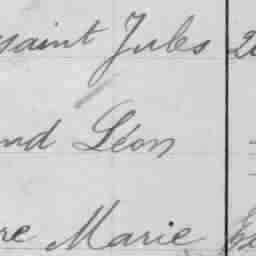 saint Jules 2
nd Léon
re Marie